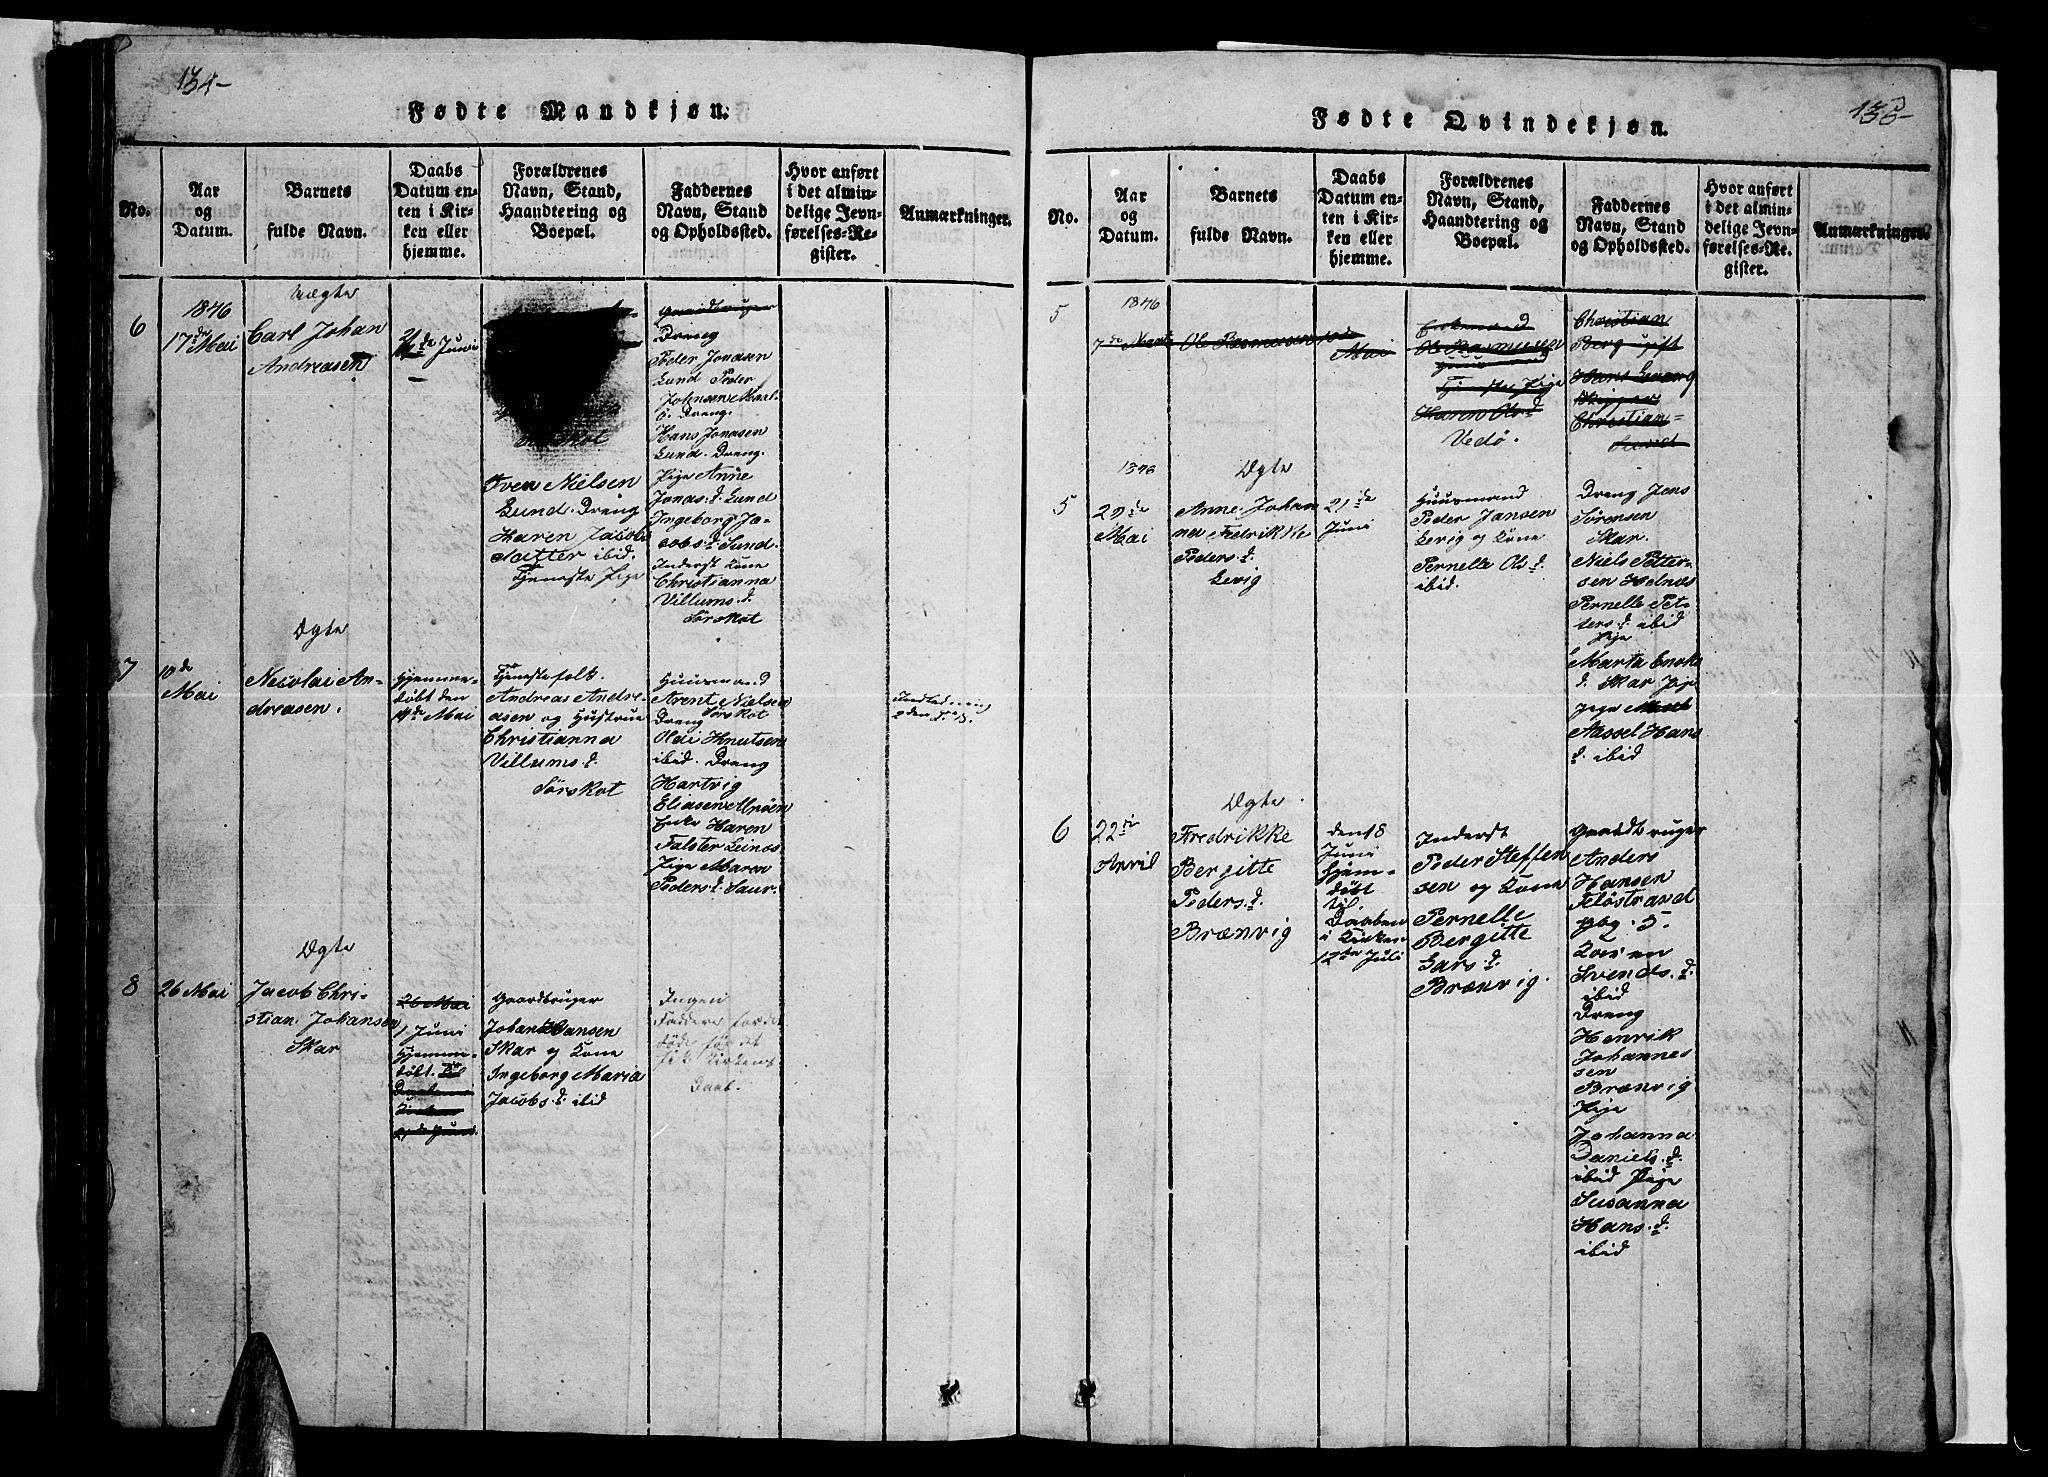 134-
Fødte Mandkjøn.
No.
Aar
og
Datum.
Barnets
fulde Navn.
Daabs
Datum en-
ten i Kir-
ken eller
hjemme.
Forældrenes
Navn, Stand,
Haandtering og
Boepæl.
Faddernes
Navn, Stand
og Opholdssted.
Hvor anført
i det almin-
delige Jevn-
førelses-Re-
gister.
Anmærkninger.
6
1846
17de Mai
Uægte
Carl Johan
Andreasen
21de Juni
Sven Nielsen
Lund. Dreng
Haren Jacobs
Sætter ibid.
Tjeneste Pige
Gaardbruger
Dreng
Peder Jonasen
Lund Peder
Johnsen
Dreng.
Hans Jonasen
Lund. Dreng.
Pige Anne
Jonas.d. Lund
Ingeborg Ja-
cobs.d. Sund.
Inderst Kone
Christianna
Villums.d.
Sørskot
7
10de
Mai
Ægte
Nicolai An-
dreasen.
Hjemme-
døbt den
14de Mai
Tjenestefolk.
Andreas Andre-
asen og Hustrue
Christianna
Villums.d.
Sørskot
Huusmand
Arent Nielsen
Sørskot
Dreng
Oldi Knutsen
ibid. Dreng
Hartvig
Eliasen Alnøen
Enke Haren
Falster Leinæs
Pige Maren
Peders.d. Saur.
8
26 Mai
Ægte
Jacob Chri-
stian Johansen
Skar
26 Mai
1 Juni
Hjemme-
døbt. Til
Daab
Kirken
21de Juni.
Gaardbruger
Johan Hansen
Skar og Kone
Ingeborg Maria
Jacobs.d. ibid
Ingen
Faddere for det
døde før det
fik Kirkens
Daab.
135-
Fødte Qvindekjøn.
No.
Aar
og
Datum.
Barnets
fulde Navn.
Daabs
Datum en-
ten i Kir-
ken eller
hjemme.
Forældrenes
Navn, Stand,
Haandtering og
Boepæl.
Faddernes
Navn, Stand
og Opholdssted.
Hvor anført
i det almin-
delige Jevn-
førelses-Re-
gister.
Anmærkninger.
5
1846
7de Marts
Ole Rasmussen
10de
Mai
Enkemand
Ole Rasmussen
Tjeneste Pige
Haren Ols.d.
Vedø.
Christian
Berg ugift
Hans Levang
Skipper
Christian
5
1846
29de
Mai
Ægte
Anne Johan
na Fredrikke
Peders.d.
Levig
21de
Juni
Huusmand
Peder Jansen
Levig og Kone
Pernelle Ols.d.
ibid.
Dreng Jens
Sørensen
Skar.
Niels Petter-
sen Helnæs
Pernelle Pet-
ters.d. ibid
Pige
Marta Enoks
d. Skar Pige
Pige
Aassel Hans
d. ibid
6
22de
April
Ægte
Fredrikke
Bergitte
Peders.d.
Brænvig
den 18
Juni
Hjem-
døbt
til
Daaben
i Kirken
12de Juli
Inderst
Peder Steffen
sen og Kone
Pernelle
Bergitte
Lars.d.
Brænvig.
Gaardbruger
Anders
Hansen
Fløstrand
og 5.
Koren
Svends.d.
ibid
Dreng
Henrik
Johannes
sen
Brænvig
Pige
Johanna
Daniels.d.
ibid Pige
Susanna
Hans.d.
ibid